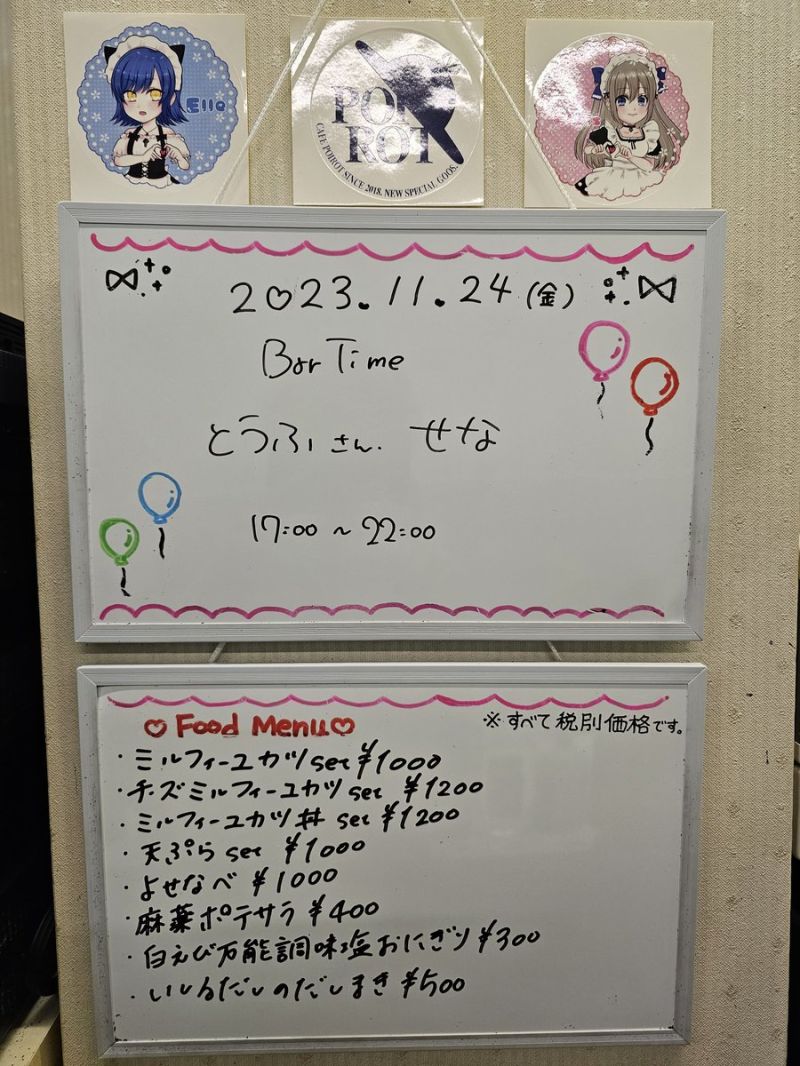 Ello
POI
ROT
CAFE POIROT SINCE 2018. NEW SPECIAL GOOS.
2023.11.24(金)
Bar Time
とうふさん. せな
17:00 ~ 22:00
Food Menu
※すべて税別価格です。
・ミルフィーユカツset ¥1000
・チーズミルフィーユカツ set ¥1200
・ミルフィーユカツ丼 set ¥1200
・天ぷら set ¥1000
・よせなべ ¥1000
・麻薬ポテサラ ¥400
・白えび万能調味塩おにぎり ¥300
・いしるだしのだしまき ¥500